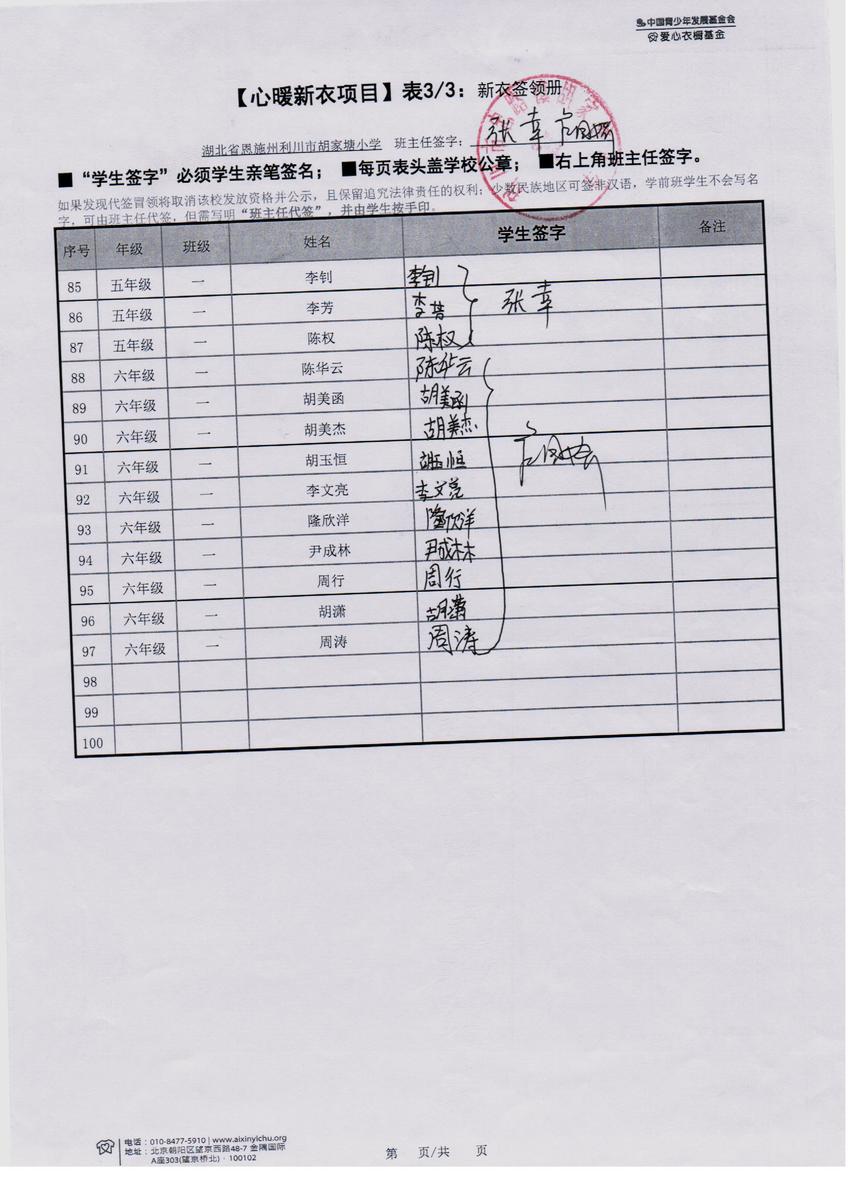 中国青少年发展基金会
爱心衣橱基金
【心暖新衣项目】表3/3：新衣签领册
湖北省恩施州利川市胡家塘小学 班主任签字：张幸
■“学生签字”必须学生亲笔签名；■每页表头盖学校公章；■右上角班主任签字。
如果发现代签冒领将取消该校发放资格并公示，且保留追究法律责任的权利；少数民族地区可签非汉语，学前班学生不会写名
字，可由班主任代签，但需写明“班主任代签”，并由学生按手印。
序号 年级 班级 姓名 学生签字 备注
85 五年级 一 李钊 李钊
86 五年级 一 李芳 李芳 张幸
87 五年级 一 陈权 陈权
88 六年级 一 陈华云 陈华云
89 六年级 一 胡美函 胡美函
90 六年级 一 胡美杰 胡美杰
91 六年级 一 胡玉恒 胡玉恒
92 六年级 一 李文亮 李文亮
93 六年级 一 隆欣洋 隆欣洋
94 六年级 一 尹成林 尹成林
95 六年级 一 周行 周行
96 六年级 一 胡潇 胡潇
97 六年级 一 周涛 周涛
98
99
100
电话：010-8477-5910 | www.aixinyichu.org
地址：北京朝阳区望京西路48-7 金隅国际
A座303(望京桥北) · 100102
第 页/共 页